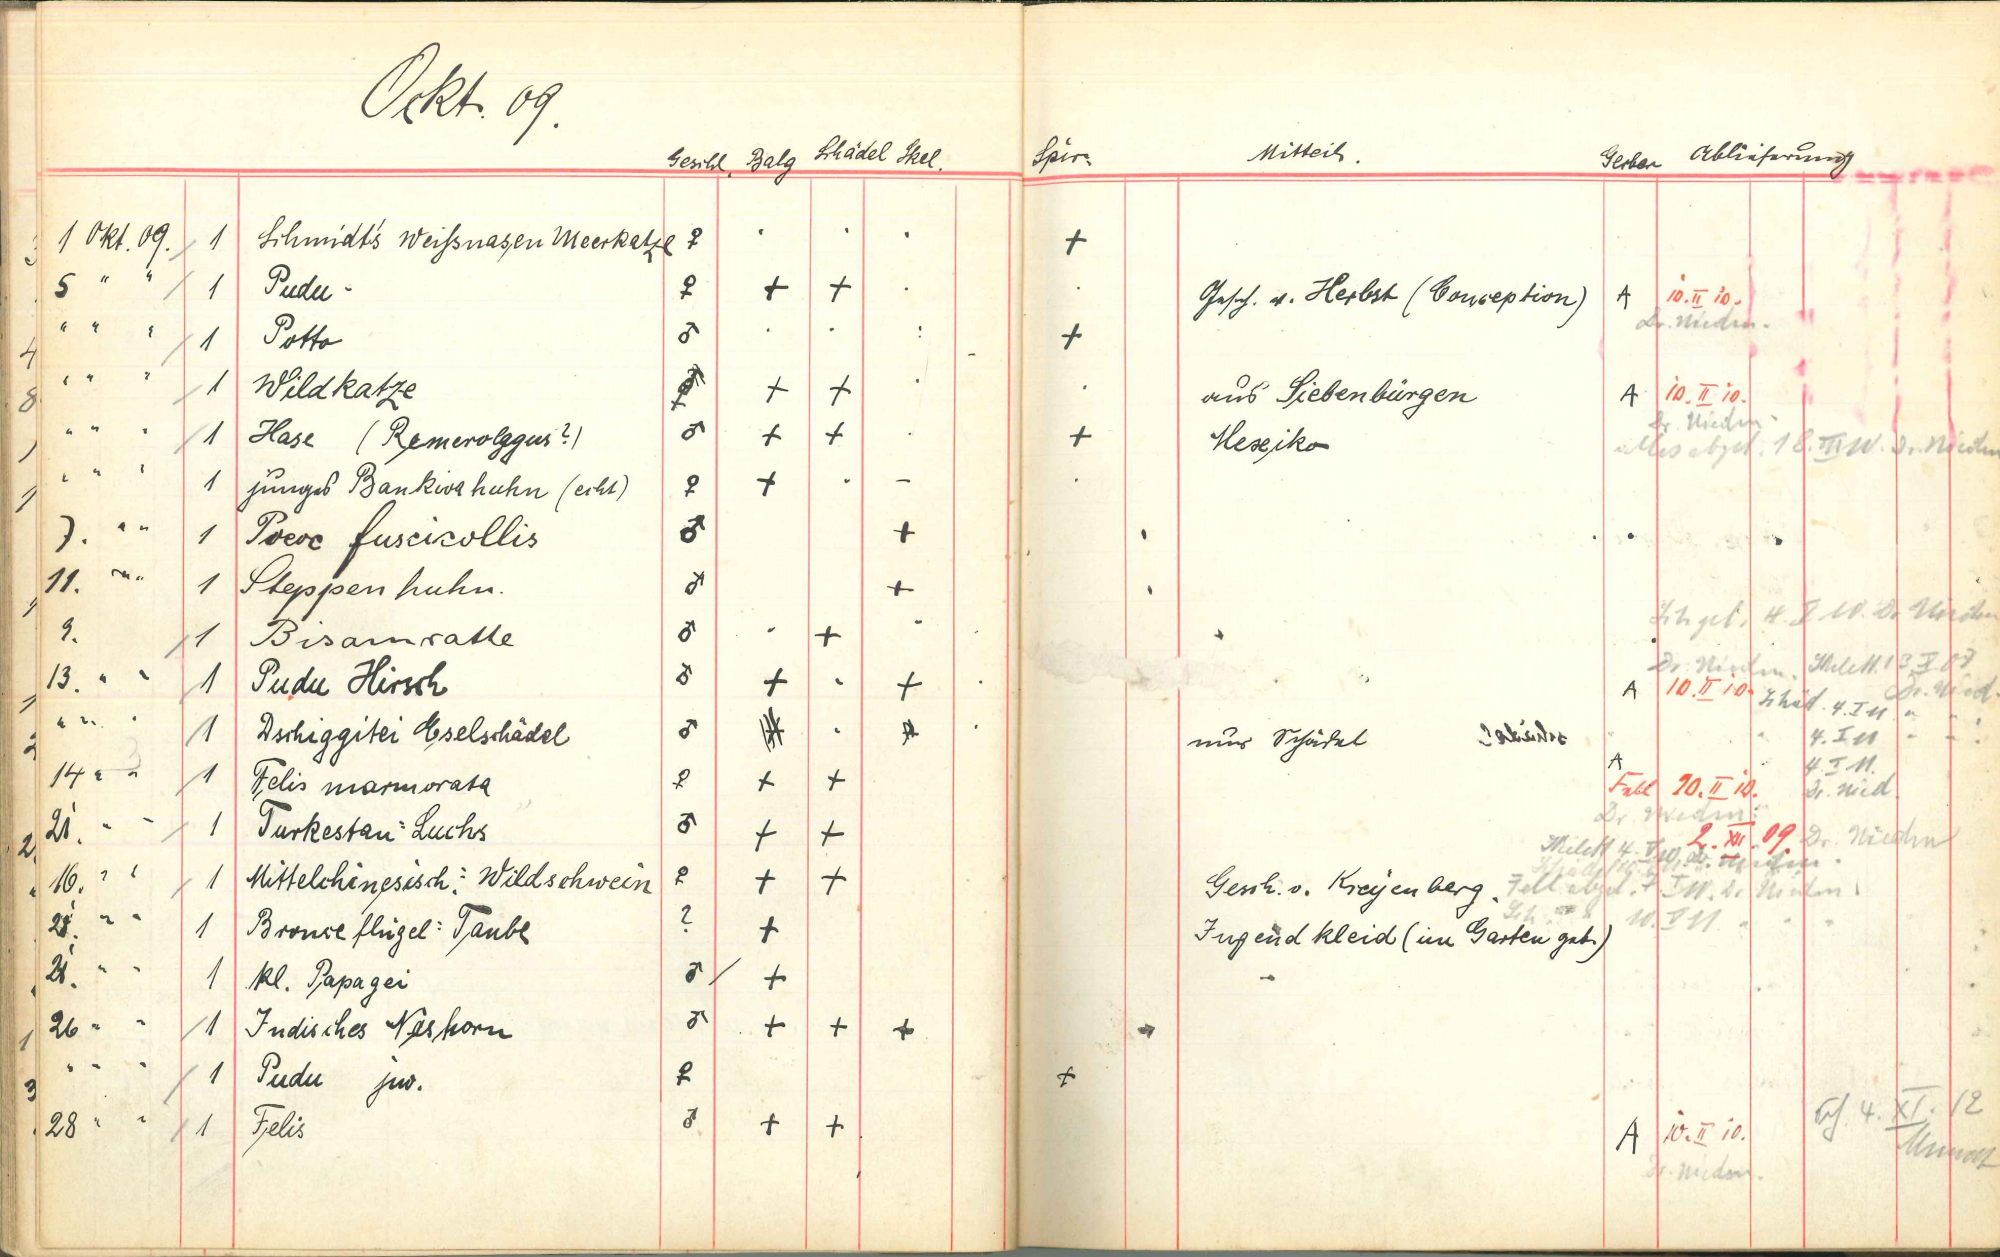 Ockt. 09.
Geschl. Balg Schädel Skel. Spir: Mitteil. Gerber Ablieferung
1 Okt. 09. 1 Schmidt's Weißnasen Meerkatze ♀ +
5 " " 1 Pudu - ♀ + + Gesch. v. Herbst (Conception) A 10. II 10.
Dr. Nieden.
" " " 1 Potto ♂ +
" " " 1 Wildkatze + + aus Siebenbürgen A 10. II 10.
Dr. Nieden
" " " 1 Hase (Romerolagus?) ♂ + + + Mexiko Dr. Nieden
" " " 1 junges Bankivahuhn (echt) ♀ + -
7. " " 1 fuscicollis ♂ +
11. " " 1 Steppenhuhn. ♂ +
9. 1 Bisamratte ♂ + 4. I 10. Dr. Nieden
Dr. Nieden.
13. " " 1 Pudu Hirsch ♂ + + A 10. II 10. Schäd. 4. I 11 " "
" " " 1 Dschiggitei Eselschädel ♂ nur Schädel 4. I 11 " "
14 " " 1 Felis marmorata ♀ + + A Fell 10. II 10. 4. I 11. Dr. Nied.
Dr. Nieden
21. " " 1 Turkestan: Luchs ♂ + + 2. XII. 09. Dr. Nieden
16. " " 1 Mittelchinesisch: Wildschwein ♀ + + Gesch. v. Kreyenberg. Dr. Nieden
" " 1 Bronceflügel: Taube ? + Jugendkleid (im Garten geb.) 10. V 11. " "
21. " " 1 kl. Papagei ♂ +
26 " " 1 Indisches Nashorn ♂ + + +
" " " 1 Pudu juv. ♀ +
28 " " 1 Felis ♂ + + A 10. II 10. 4. XI. 12
Dr. Nieden.